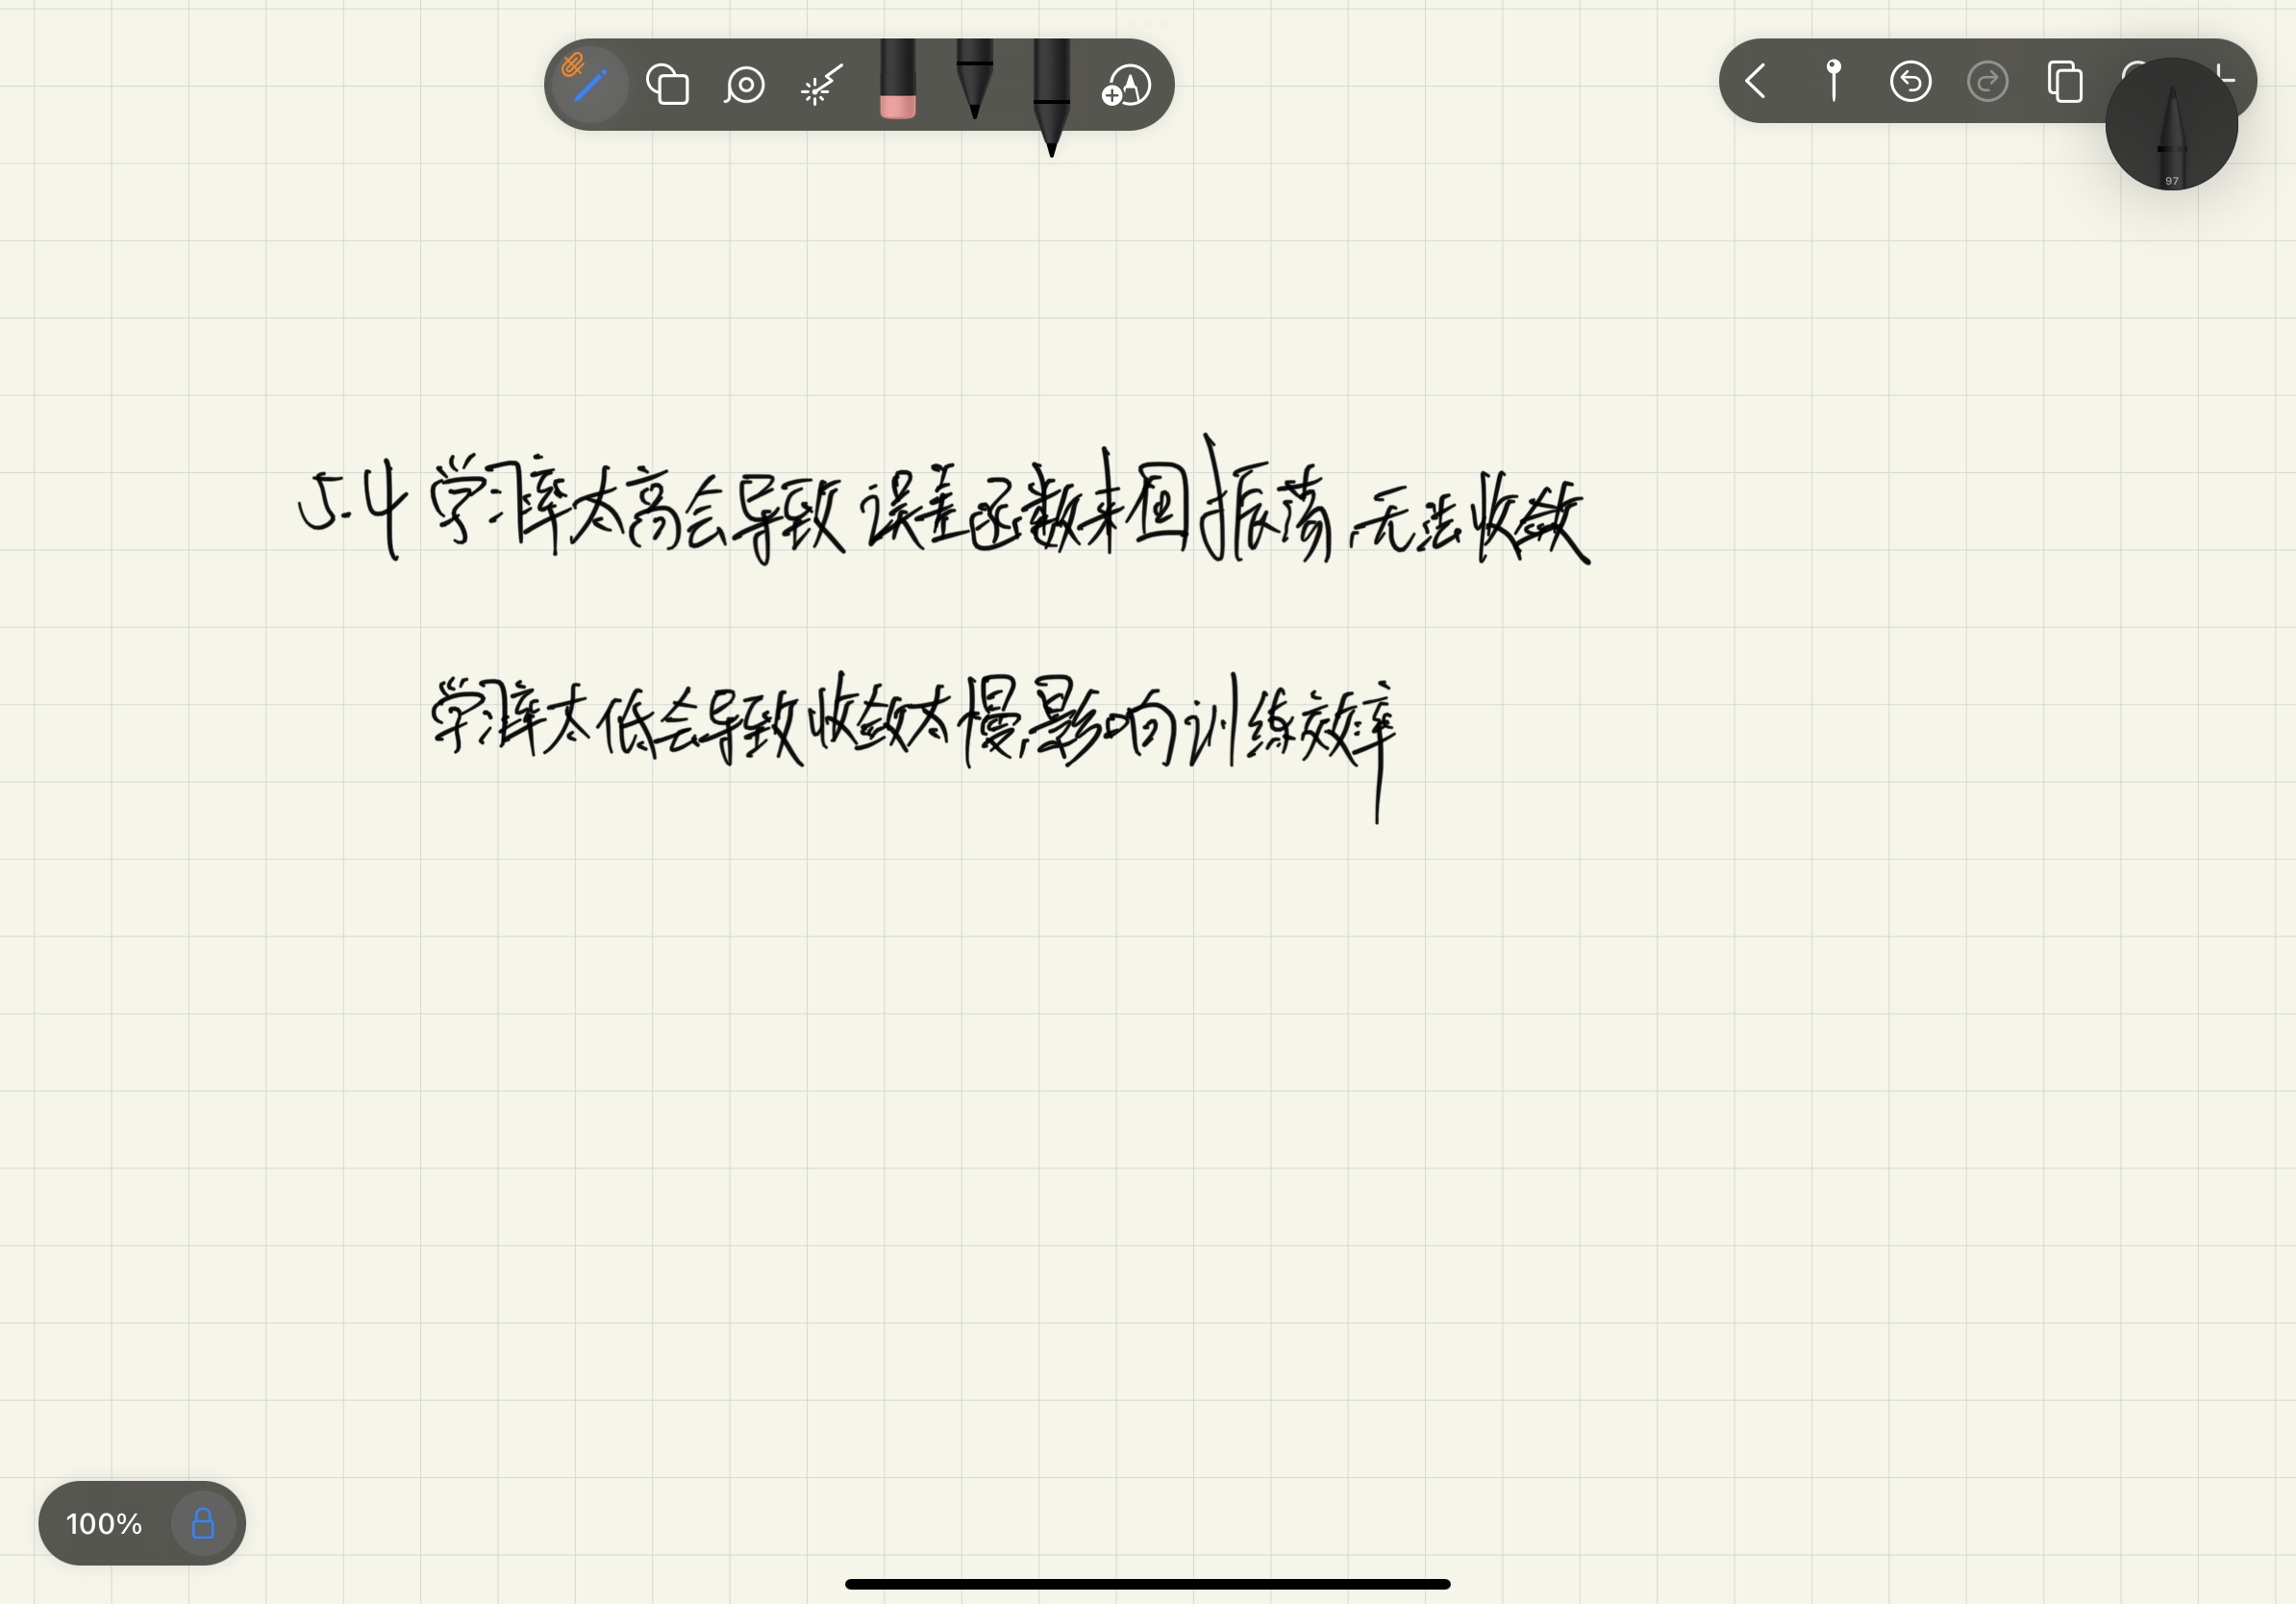 97
5.4 学习率太高会导致误差函数来回振荡,无法收敛
学习率太低会导致收敛太慢,影响训练效率
100%